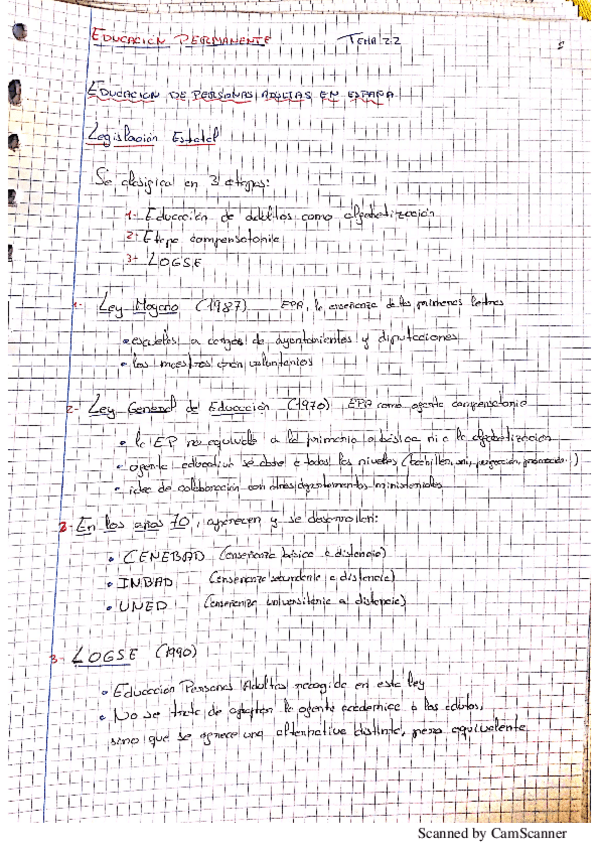 EDUCACIÓN PERMANENTE TEMA 2.2
EDUCACION DE PERSONAS ADULTAS EN ESPAÑA
Legislación Estatal
Se clasifica en 3 etapas:
1- Educación de adultos como alfabetización
2- Etapa compensatoria
3- LOGSE
1- Ley Moyano (1987) EPA, la enseñanza de las primeras letras
• escuelas a cargo de ayuntamientos y diputaciones
• los maestros eran voluntarios
2- Ley General de Educación (1970) EPA como agente compensatorio
• la EP no equivale a la primaria o básica ni a la alfabetización
• agente educativa se abre a todos los niveles (bachiller, )
• idea de colaboración con otros departamentos ministeriales
2- En los años 70, aparecen y se desarrollan:
• CENEBAD (enseñanza básica a distancia)
• INBAD (enseñanza secundaria a distancia)
• UNED (enseñanza universitaria a distancia)
3- LOGSE (1990)
• Educación Personas Adultas recogida en esta ley
• No se trata de adaptar la académica a los adultos,
sino que se ofrece una alternativa distinta, pero equivalente
Scanned by CamScanner